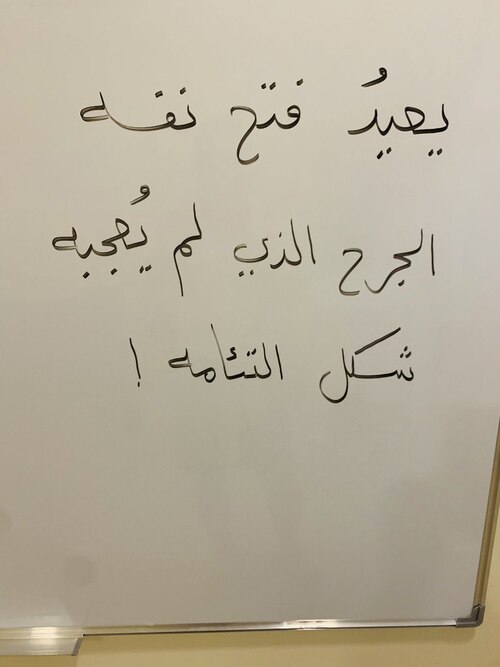 يعيدُ فتح نفسه
الجرح الذي لم يُعجبه
شكل التئامه !